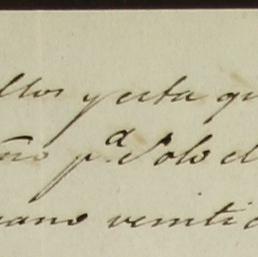 llos y esta qu
ño pª Solo el
cano veinti c